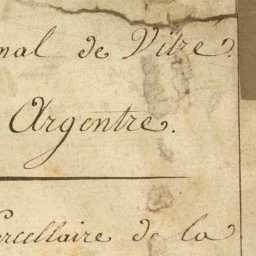 nal de Vitré.
Argentré.
arcellaire de la